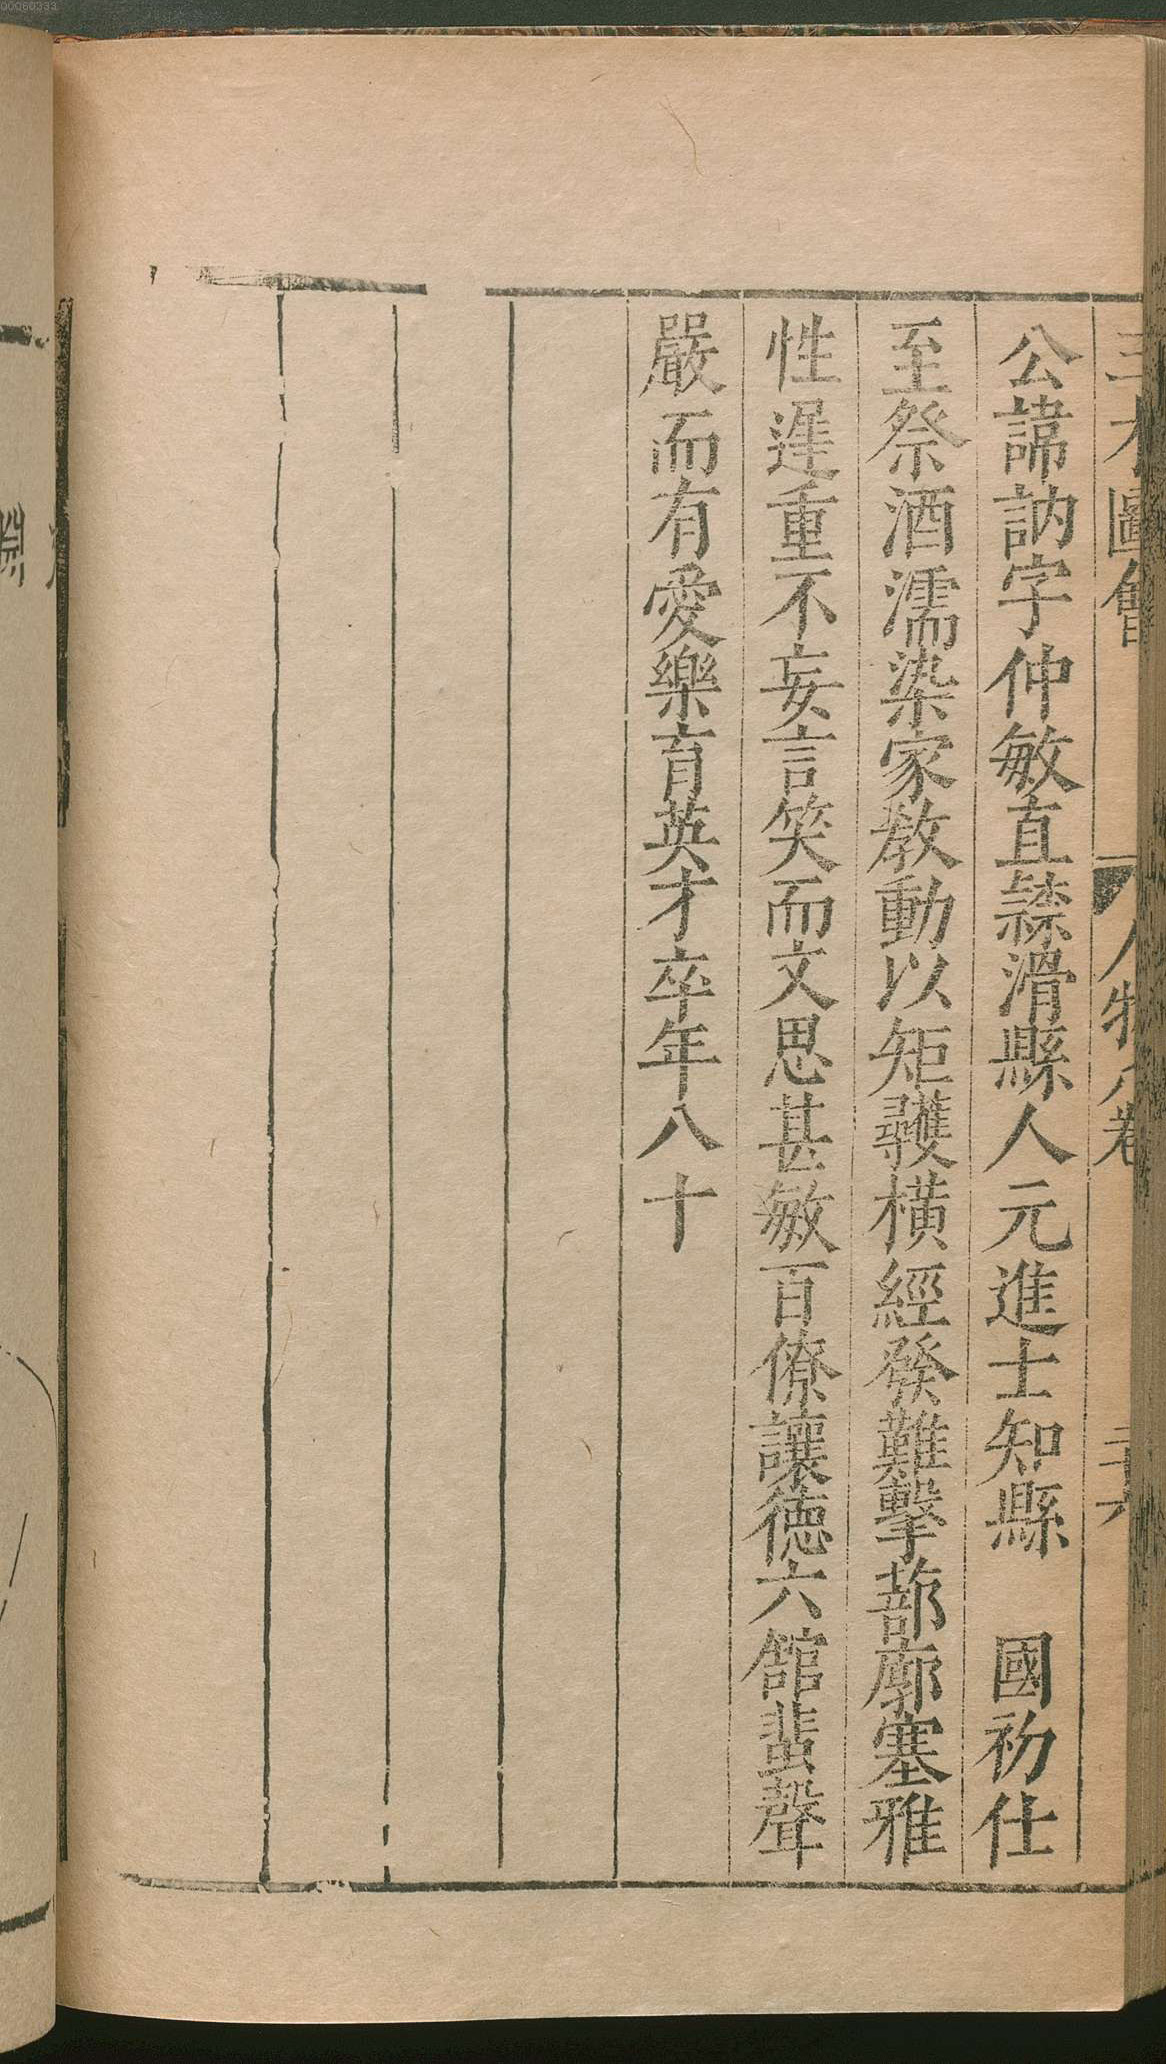 三才圖會
人物八卷
三十六
公諱訥字仲敏直𨽻滑縣人元進士知縣　國初仕
至祭酒濡染家教動以矩彠橫經發難擊蔀廓塞雅
性遲重不妄言笑而文思甚敏百僚讓德六館蜚聲
嚴而有愛樂育英才卒年八十
00060333